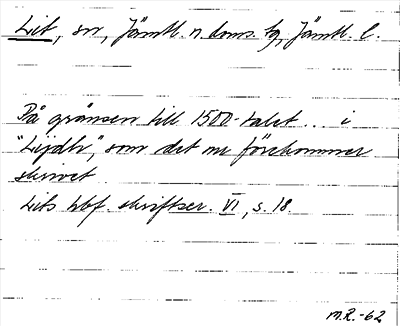 Lit, sn, Jämtl. n. doms. tg, Jämtl. l.
På gränsen till 1500-talet... i
"Lijdh", som det nu förekommer
skrivet
Lits hbf. skriftser. VI, s. 18.
M.R.-62